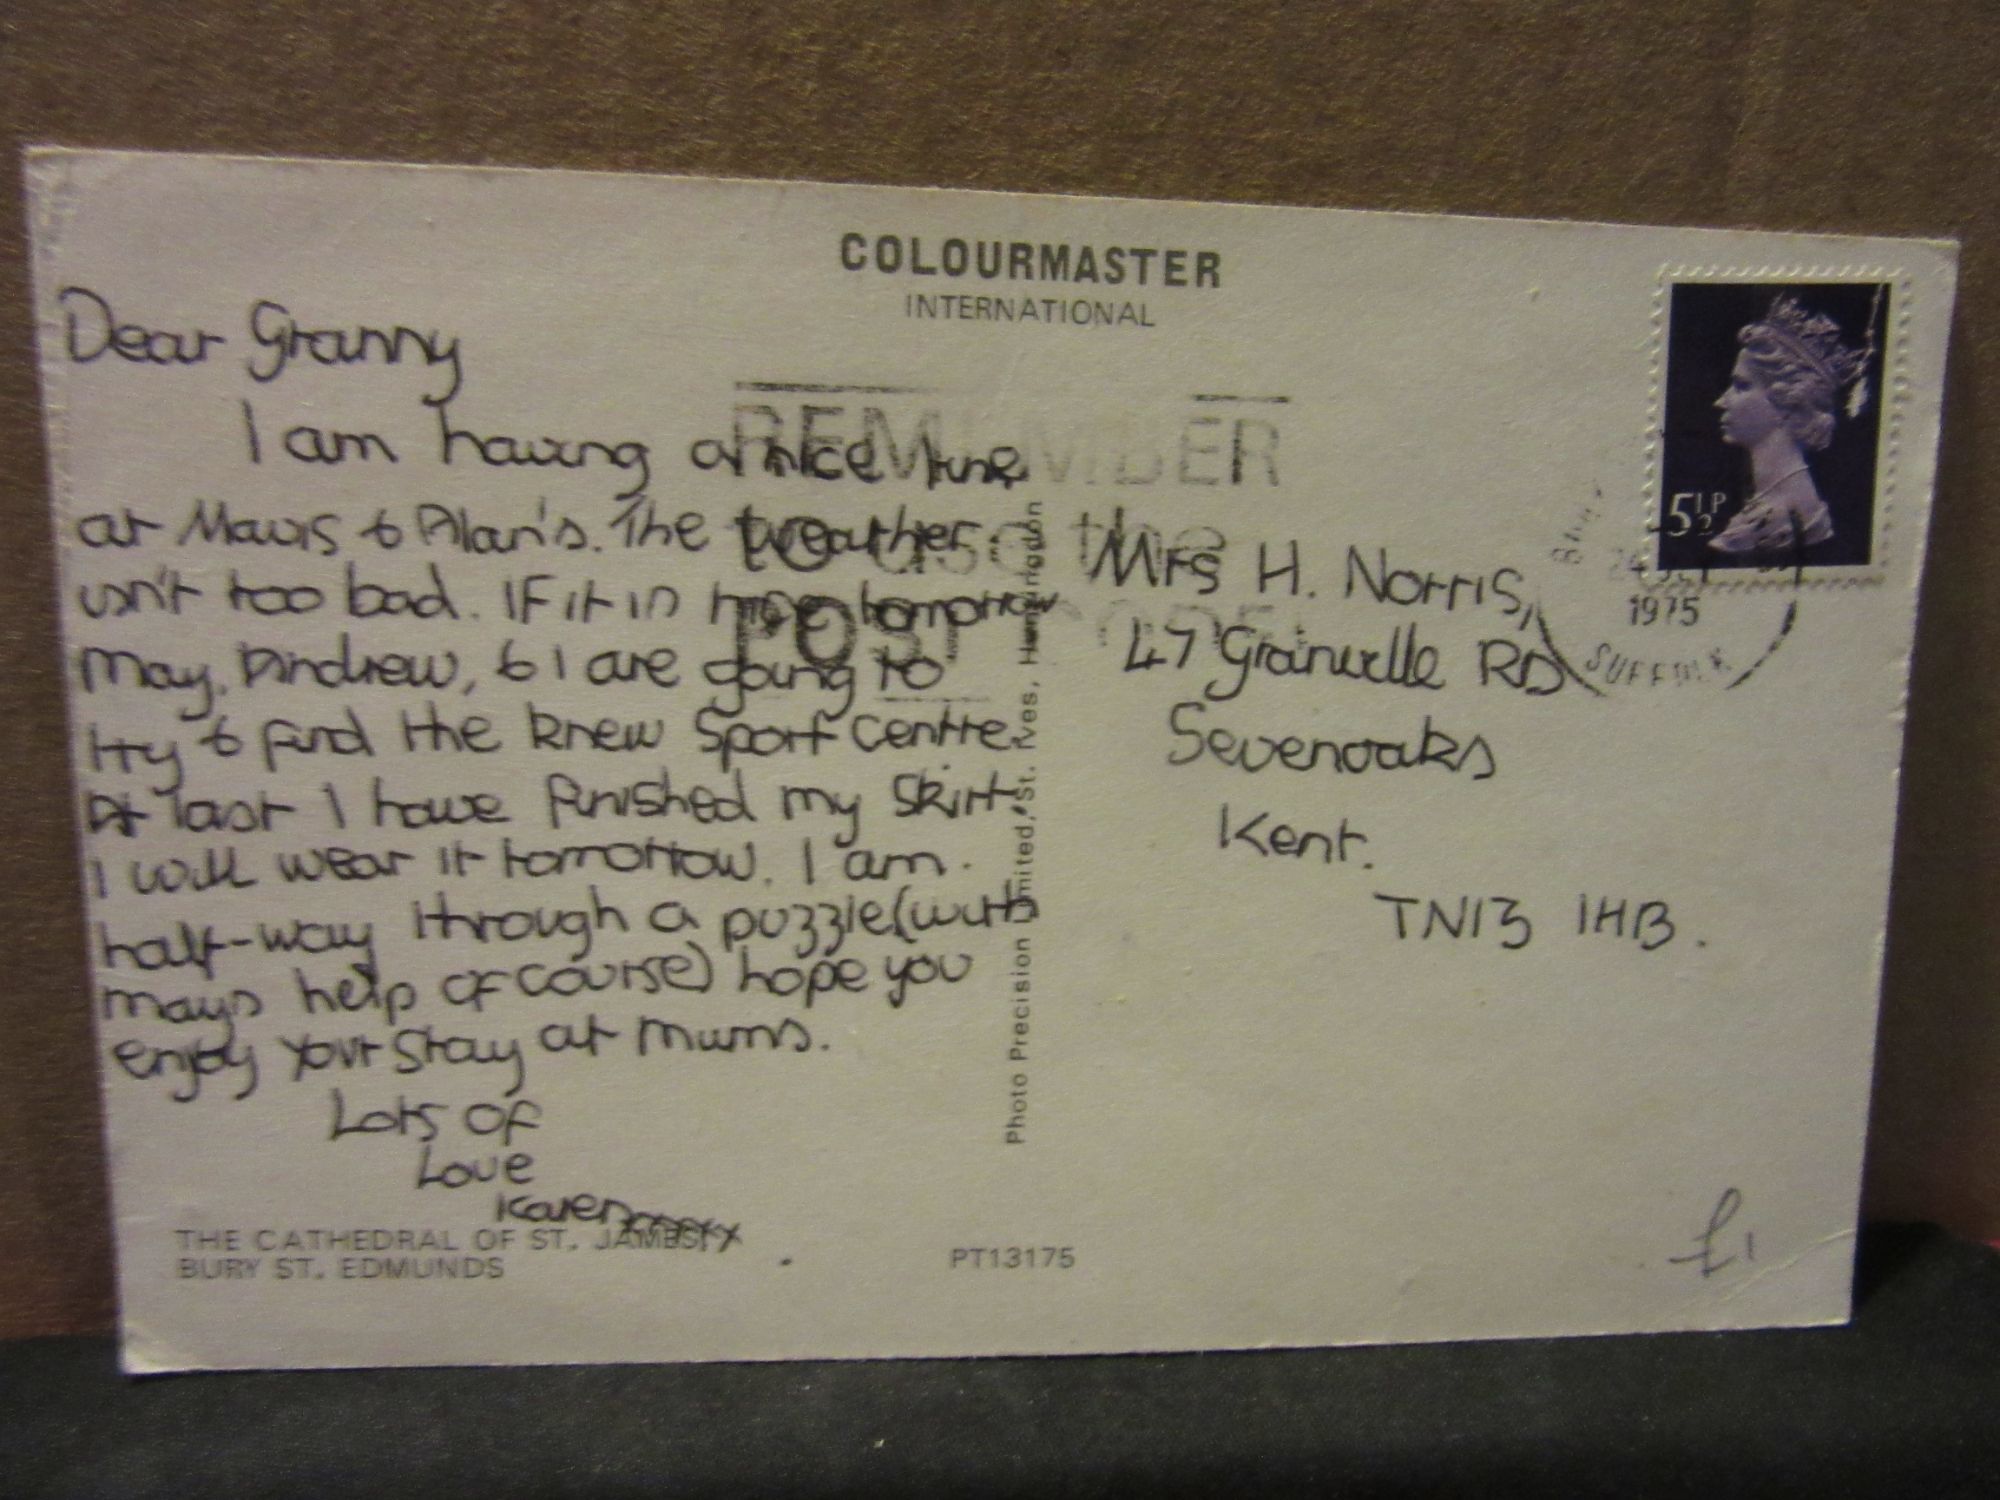 COLOURMASTER
INTERNATIONAL
Dear Granny
I am having a nice time
at Mavis & Alan's. The weather
isn't too bad. IF it is nice tomorrow
May, Andrew, & I are going to
try to find the knew Sport Centre.
At last I have finished my skirt
I will wear it tomorrow. I am
half-way through a puzzle (with
mays help of course) hope you
enjoy your stay at mums.
Lots of
Love
Karen
THE CATHEDRAL OF ST. JAMES
BURY ST. EDMUNDS
PT13175
Photo Precision Limited, St. Ives, Huntingdon
REMEMBER
to use the
POST CODE
5½P
1975
SUFFOLK
Mrs H. Norris,
47 Granville RD
Sevenoaks
Kent.
TN13 1HB.
£1